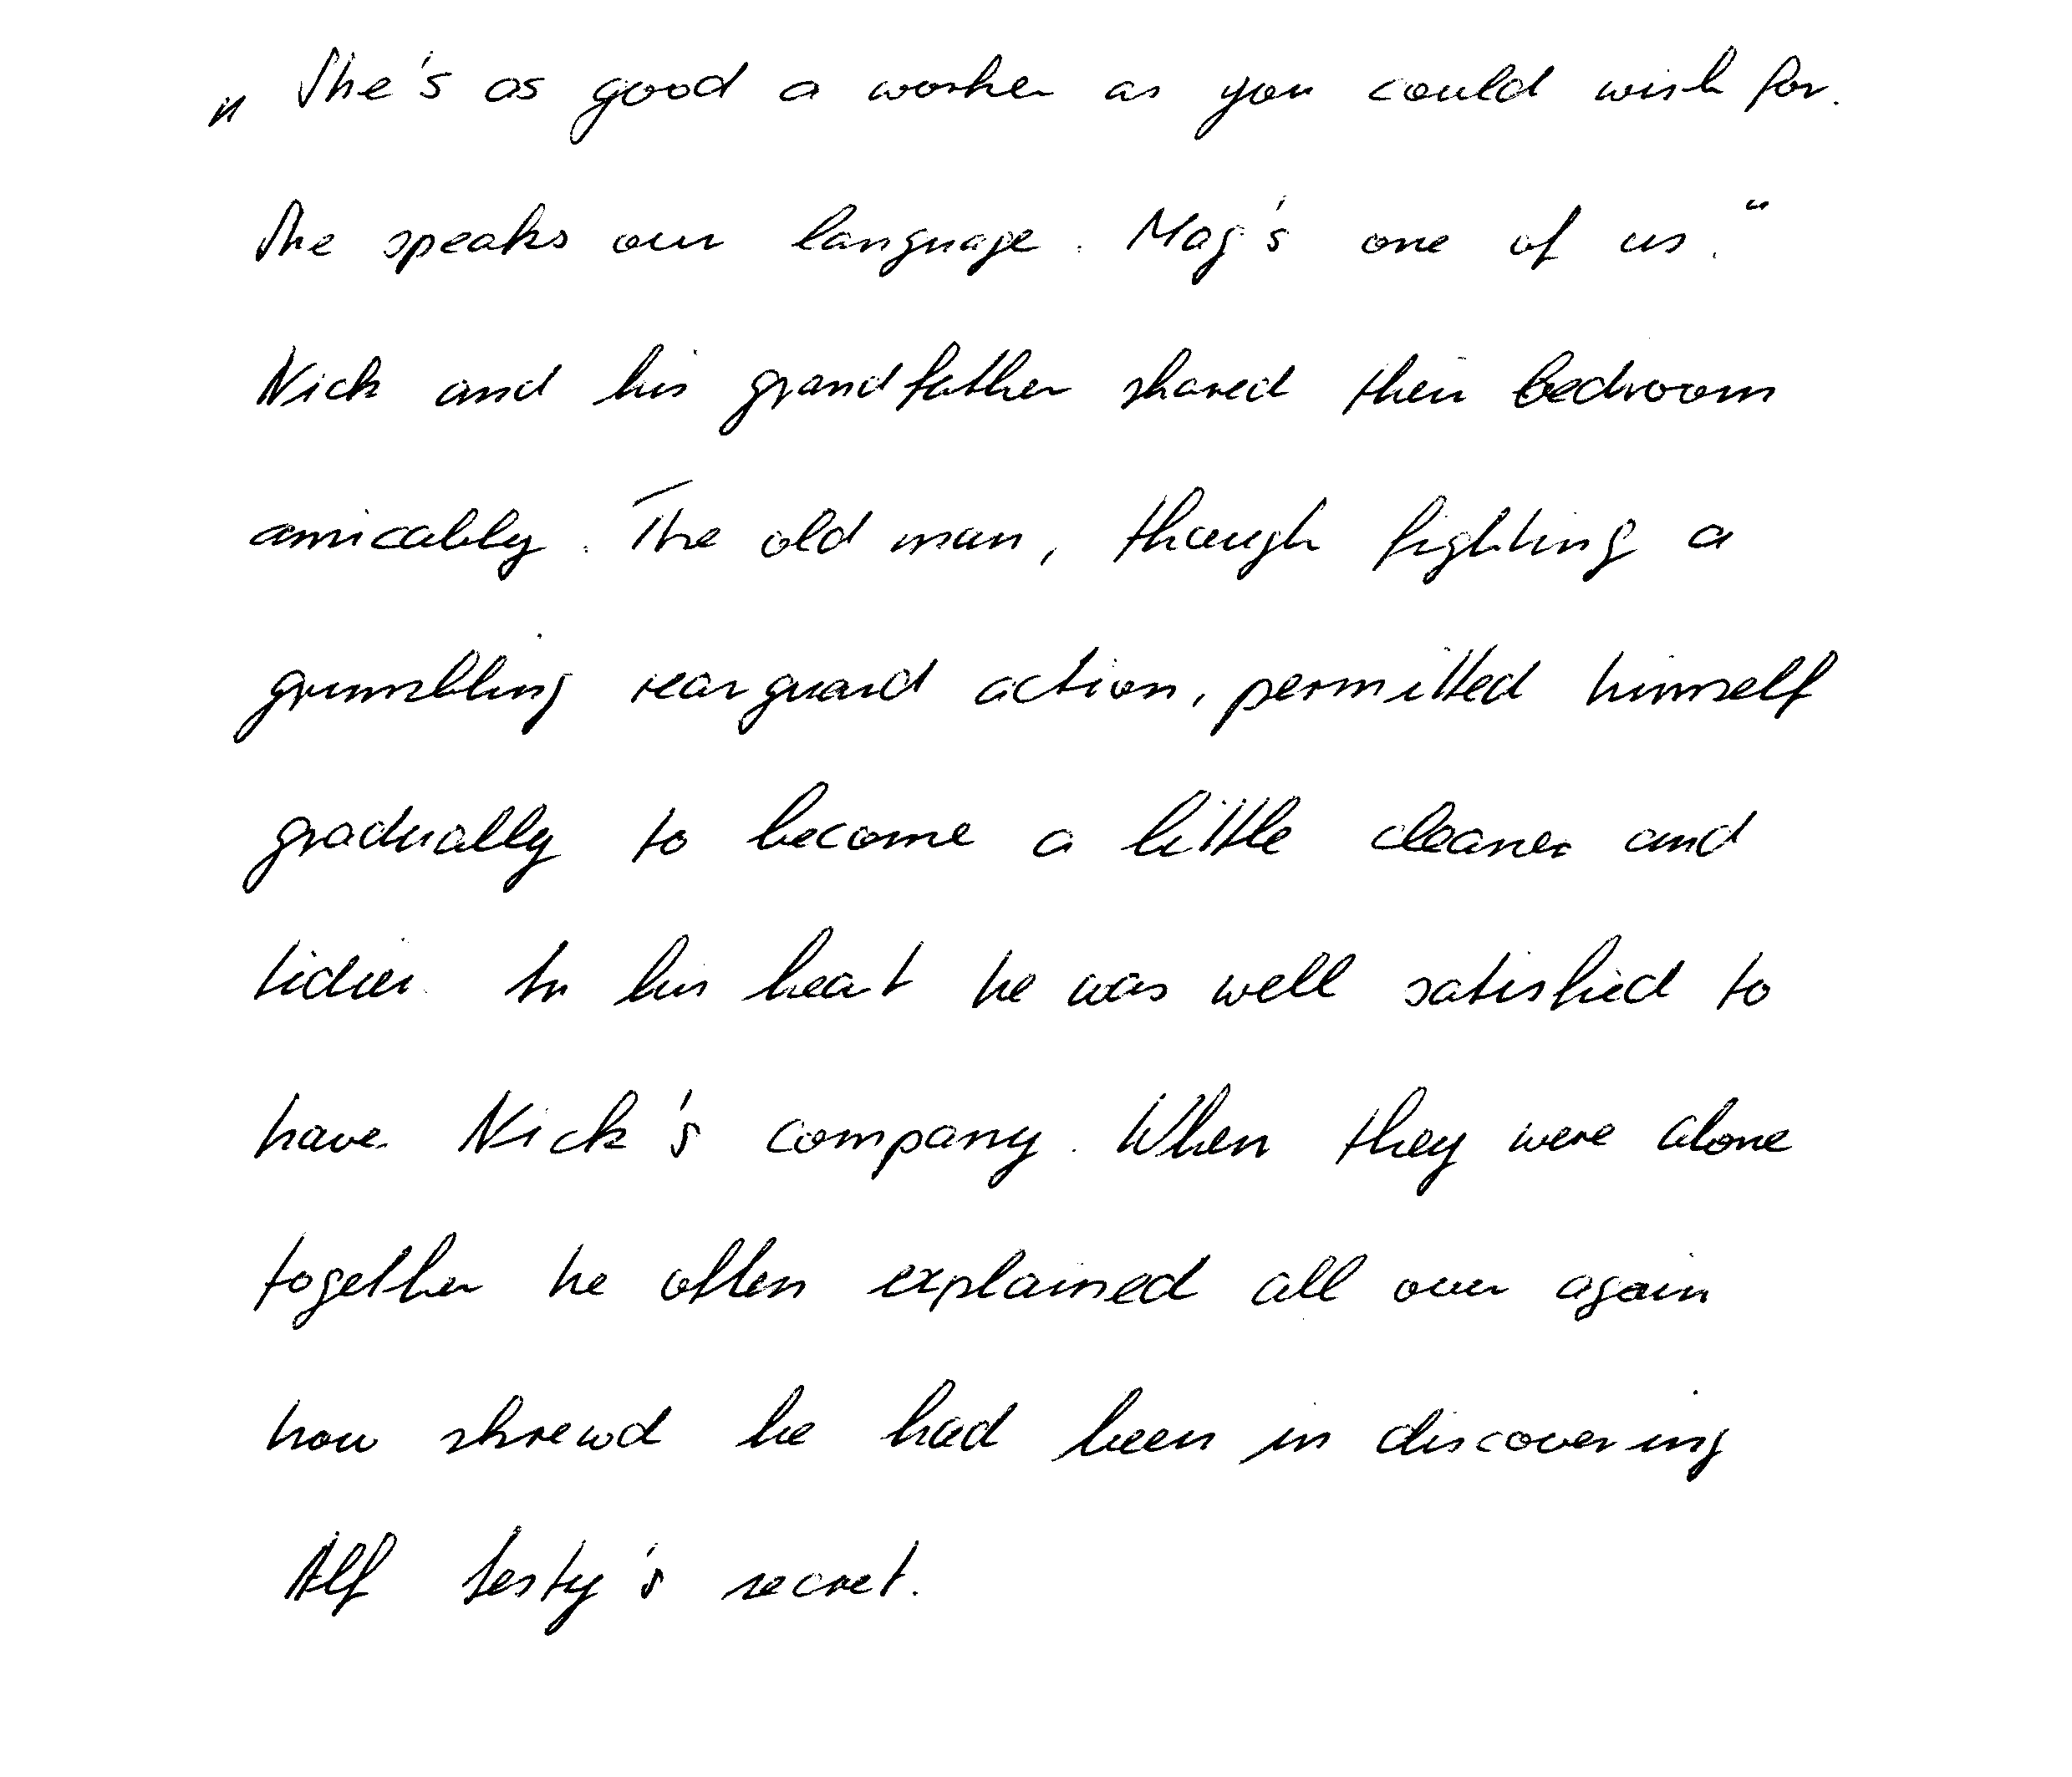 „She's as good a worker as you could wish for.
She speaks our language. Mag's one of us.“
Nick and his grandfather shared their bedroom
amicably. The old man, though fighting a
grumbling rearguard action, permitted himself
gradually to become a little cleaner and
tidier. In his heart he was well satisfied to
have Nick's company. When they were alone
together he often explained all over again
how shrewd he had been in discovering
Alf secret.